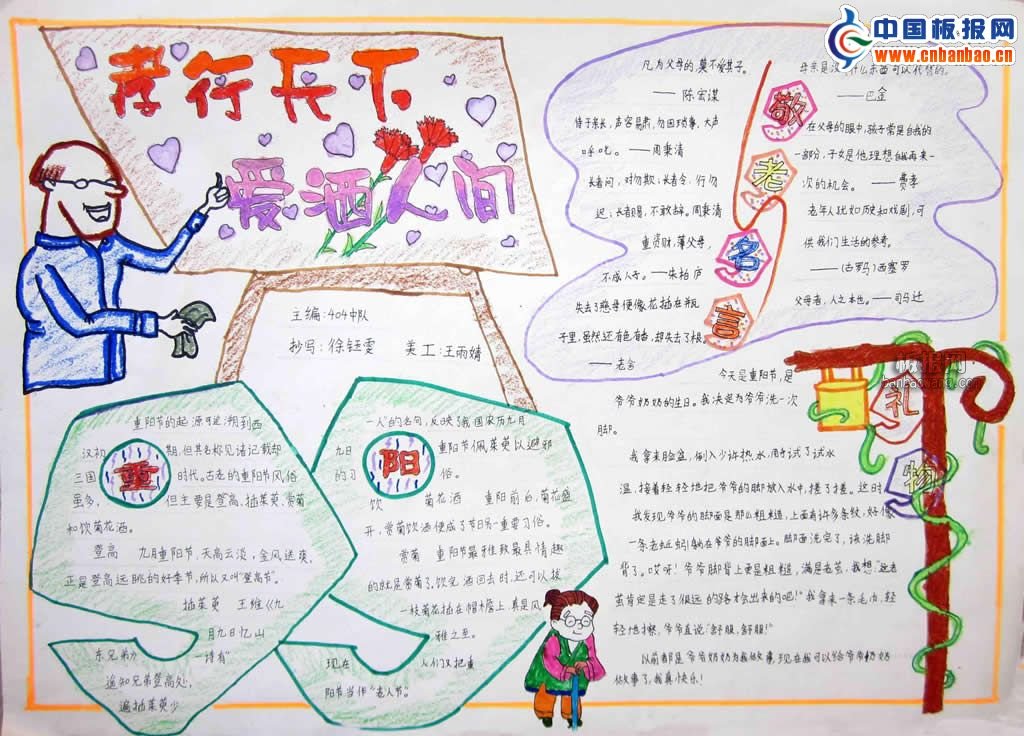 中国板报网
www.cnbanbao.cn
孝行天下
爱洒人间
主编:404中队
抄写:徐钰雯 美工:王雨婧
敬老名言
凡为父母的莫不爱其子。
——陈宏谋
侍于亲长,声容易肃,勿因琐事,大声
呼叱。——周秉清
长者问,对勿欺;长者令,行勿
迟;长者赐,不敢辞。周秉清
重资财,薄父母,
不成人子。——朱柏庐
失去了慈母便像花插在瓶
子里,虽然还有色有香,却失去了根。
——老舍
母亲是没有什么东西可以代替的。
——巴金
在父母的眼中,孩子常是自我的
一部分,子女是他理想自我再来一
次的机会。——费孝
老年人犹如历史和戏剧,可
供我们生活的参考。
——(古罗马)西塞罗
父母者,人之本也。——司马迁
重
重阳节的起源可追溯到西
汉初期,但其名称见诸记载却
三国时代。古老的重阳节风俗
虽多,但主要是登高、插茱萸、赏菊
和饮菊花酒。
登高 九月重阳节,天高云淡,金风送爽,
正是登高远眺的好季节,所以又叫"登高节"。
插茱萸 王维《九
月九日忆山
东兄弟》一诗有"
遥知兄弟登高处,
遍插茱萸少
阳
一人"的名句,反映了我国农历九月
九日重阳节佩茱萸以避邪
的习俗。
饮菊花酒 重阳前后,菊花盛
开,赏菊饮酒便成了节日另一重要习俗。
赏菊 重阳节最雅致最具情趣
的就是赏菊了,饮完酒回去时,还可以拔
一枝菊花插在帽檐上,真是风
雅之至。
现在人们又把重
阳节当作"老人节。
礼物
板报网
banbaowang.com
今天是重阳节,是
爷爷奶奶的生日。我决定为爷爷洗一次
脚。
我拿来脸盆,倒入少许热水,用手试了试水
温,接着轻轻地把爷爷的脚放入水中,搓了搓。这时
我发现,爷爷的脚面是那么粗糙,上面有许多条纹,好像
一条老蚯蚓躺在爷爷的脚面上。脚面洗完了,该洗脚
背了。哎呀!爷爷脚背上更是粗糙,满是老茧,我想:"这老
茧肯定是走了很远的路才会出来的吧!"我拿来一条毛巾,轻
轻地擦,爷爷直说"舒服,舒服!"
以前都是爷爷奶奶为我做事,现在我可以给爷爷奶奶
做事了,我真快乐!